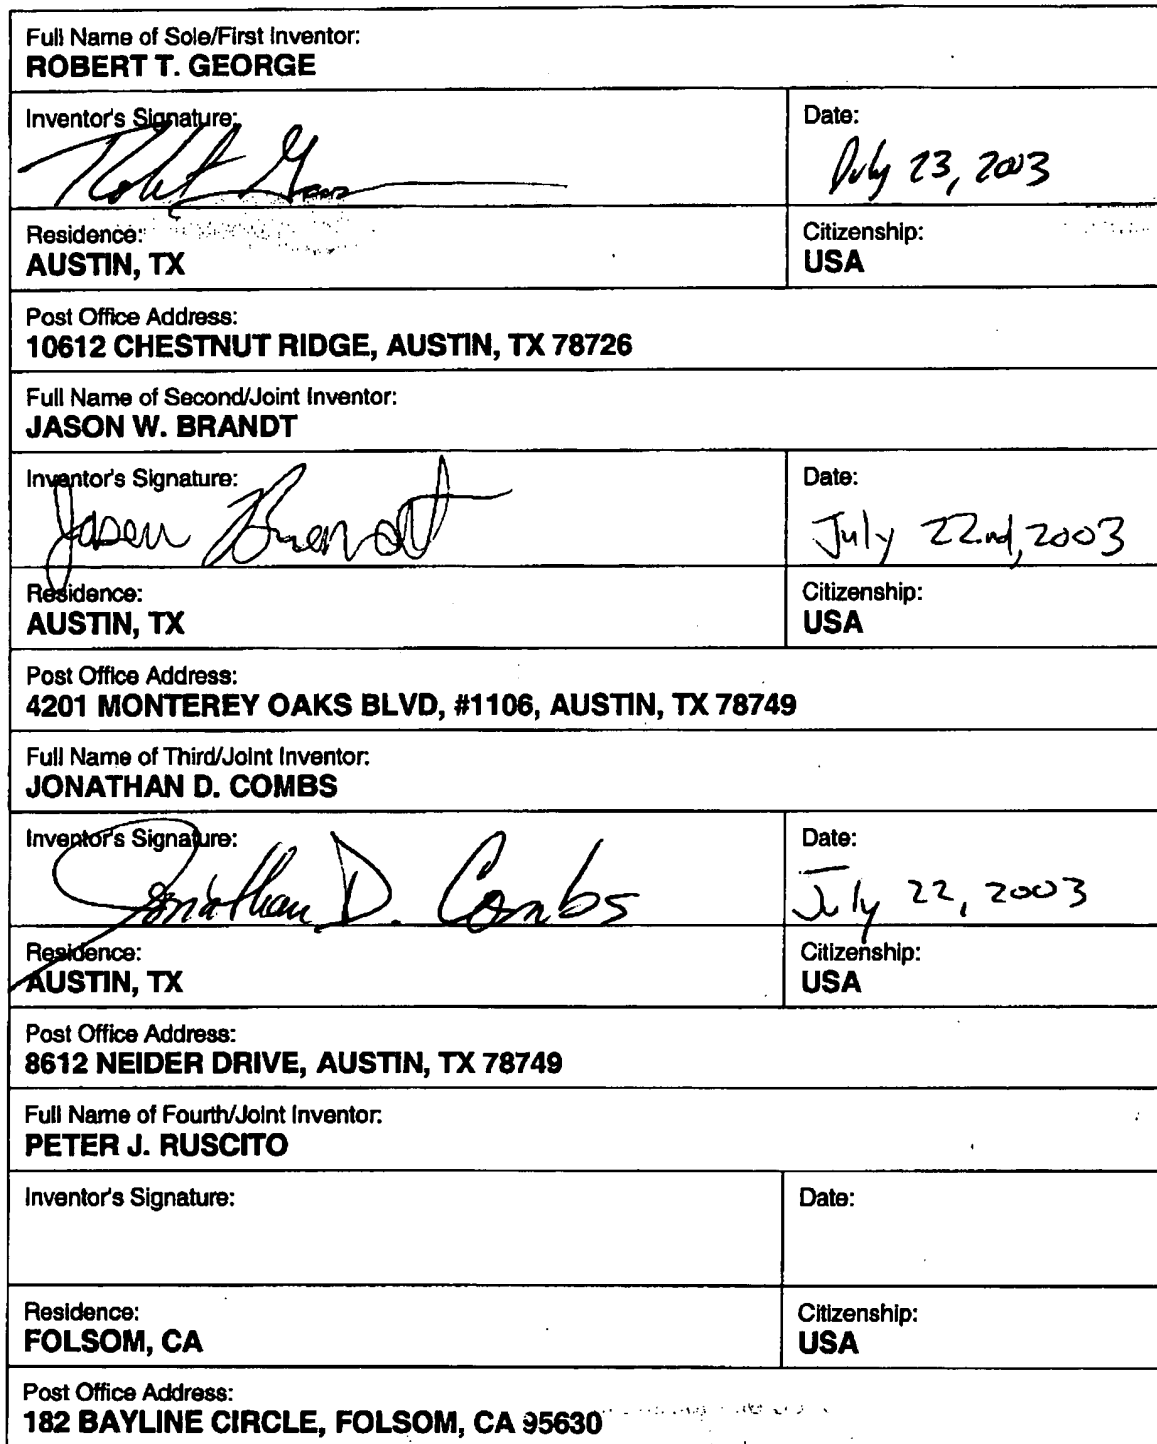 Full Name of Sole/First Inventor:
ROBERT T. GEORGE
Inventor's Signature:
Date:
Robert Geor
July 23, 2003
Residence:
Citizenship:
AUSTIN, TX
USA
Post Office Address:
10612 CHESTNUT RIDGE, AUSTIN, TX 78726
Full Name of Second/Joint Inventor:
JASON W. BRANDT
Inventor's Signature:
Date:
Jason Brandt
July 22nd, 2003
Residence:
Citizenship:
AUSTIN, TX
USA
Post Office Address:
4201 MONTEREY OAKS BLVD, #1106, AUSTIN, TX 78749
Full Name of Third/Joint Inventor:
JONATHAN D. COMBS
Inventor's Signature:
Date:
Jonathan D. Combs
July 22, 2003
Residence:
Citizenship:
AUSTIN, TX
USA
Post Office Address:
8612 NEIDER DRIVE, AUSTIN, TX 78749
Full Name of Fourth/Joint Inventor:
PETER J. RUSCITO
Inventor's Signature:
Date:
Residence:
Citizenship:
FOLSOM, CA
USA
Post Office Address:
182 BAYLINE CIRCLE, FOLSOM, CA 95630